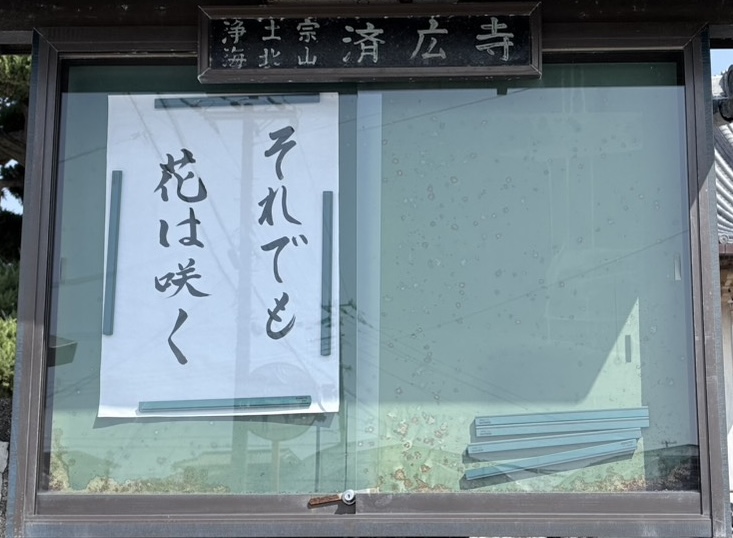 浄土宗
海北山
済広寺
それでも
花は咲く